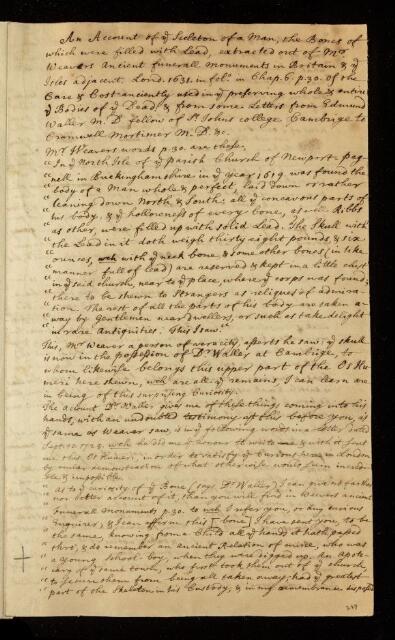 An Account of ye Sceleton of a Man, the Bones of
which were filled with Lead, extracted out of Mr
Weavers Ancient funerall monuments in Britain & ye
Isles adjacent, Lond. 1631. in fol: in Chap. 6. p. 30. of the
Care & Cost anciently used in ye preserving whole & entire
ye Bodies of ye Dead, & from some Letters from Edmund
Waller M.D. fellow of St Johns college Cambrige to
Cromwell Mortimer M.D. &c.
Mr Weavers words p. 30. are these.
"In ye North Isle of ye parish Church of Newport pag-
"nell in Buckinghamshire in ye year 1619 was found the
"body of a Man whole & perfect, laid down or rather
"leaning down North & South: all ye concavous parts of
"his body, & ye hollowness of every bone, as well Ribbs
"as other, were filled up with solid Lead. The Skull with
"the Lead in it doth weigh thirty eight pounds & six
"ounces, wch with ye neck bone & some other bones (in like
"manner full of lead) are reserved & kept in a little chest
"in ye said church, near to ye place, where ye corps was found;
"there to be shewn to Strangers as reliques of admira-
"tion. The rest of all the parts of his body are taken a-
"way by Gentlemen near dwellers, or such as take delight
"in rare Antiquities. This I saw."
This, Mr Weaver a person of varacity, asserts he saw: ye skull
is now in the possession of Dr Waller at Cambrige, to
whom likewise belongs this upper part of the Os Hu-
meri here shewn, wch are all ye remains, I can learn are
in being of this surprising Curiosity.
The Acount Dr Waller gives me of these things coming into his
hands, with an testimony of this before you, is
ye same as Weaver saw, is in ye following words in a Letter dated
Sept. wch he did me ye honour to write me & with it sent
me this Os Humeri, in order to satisfy ye Curious here in London
by ocular demonstration of what otherwise would seem incredi-
ble & impossible.
"As to ye curiosity of ye Bone (says Dr Waller) I can give no farther
nor better account of it, than you will find in Weavers ancient
funerall Monuments p. 30. to wch I refer you, or any curious
Enquirer; & I can affirm this [bone] I have sent you, to be
the same, knowing from a Child all ye hands it hath passed
thro', & do remember an ancient Relation of mine, who was
a young School-boy, when they were digged up, An Apote-
cary of ye same town, who first took them out of ye church,
to secure them from being all taken away; had ye greatest
part of the Skeleton in his Custody; & in my remembrance